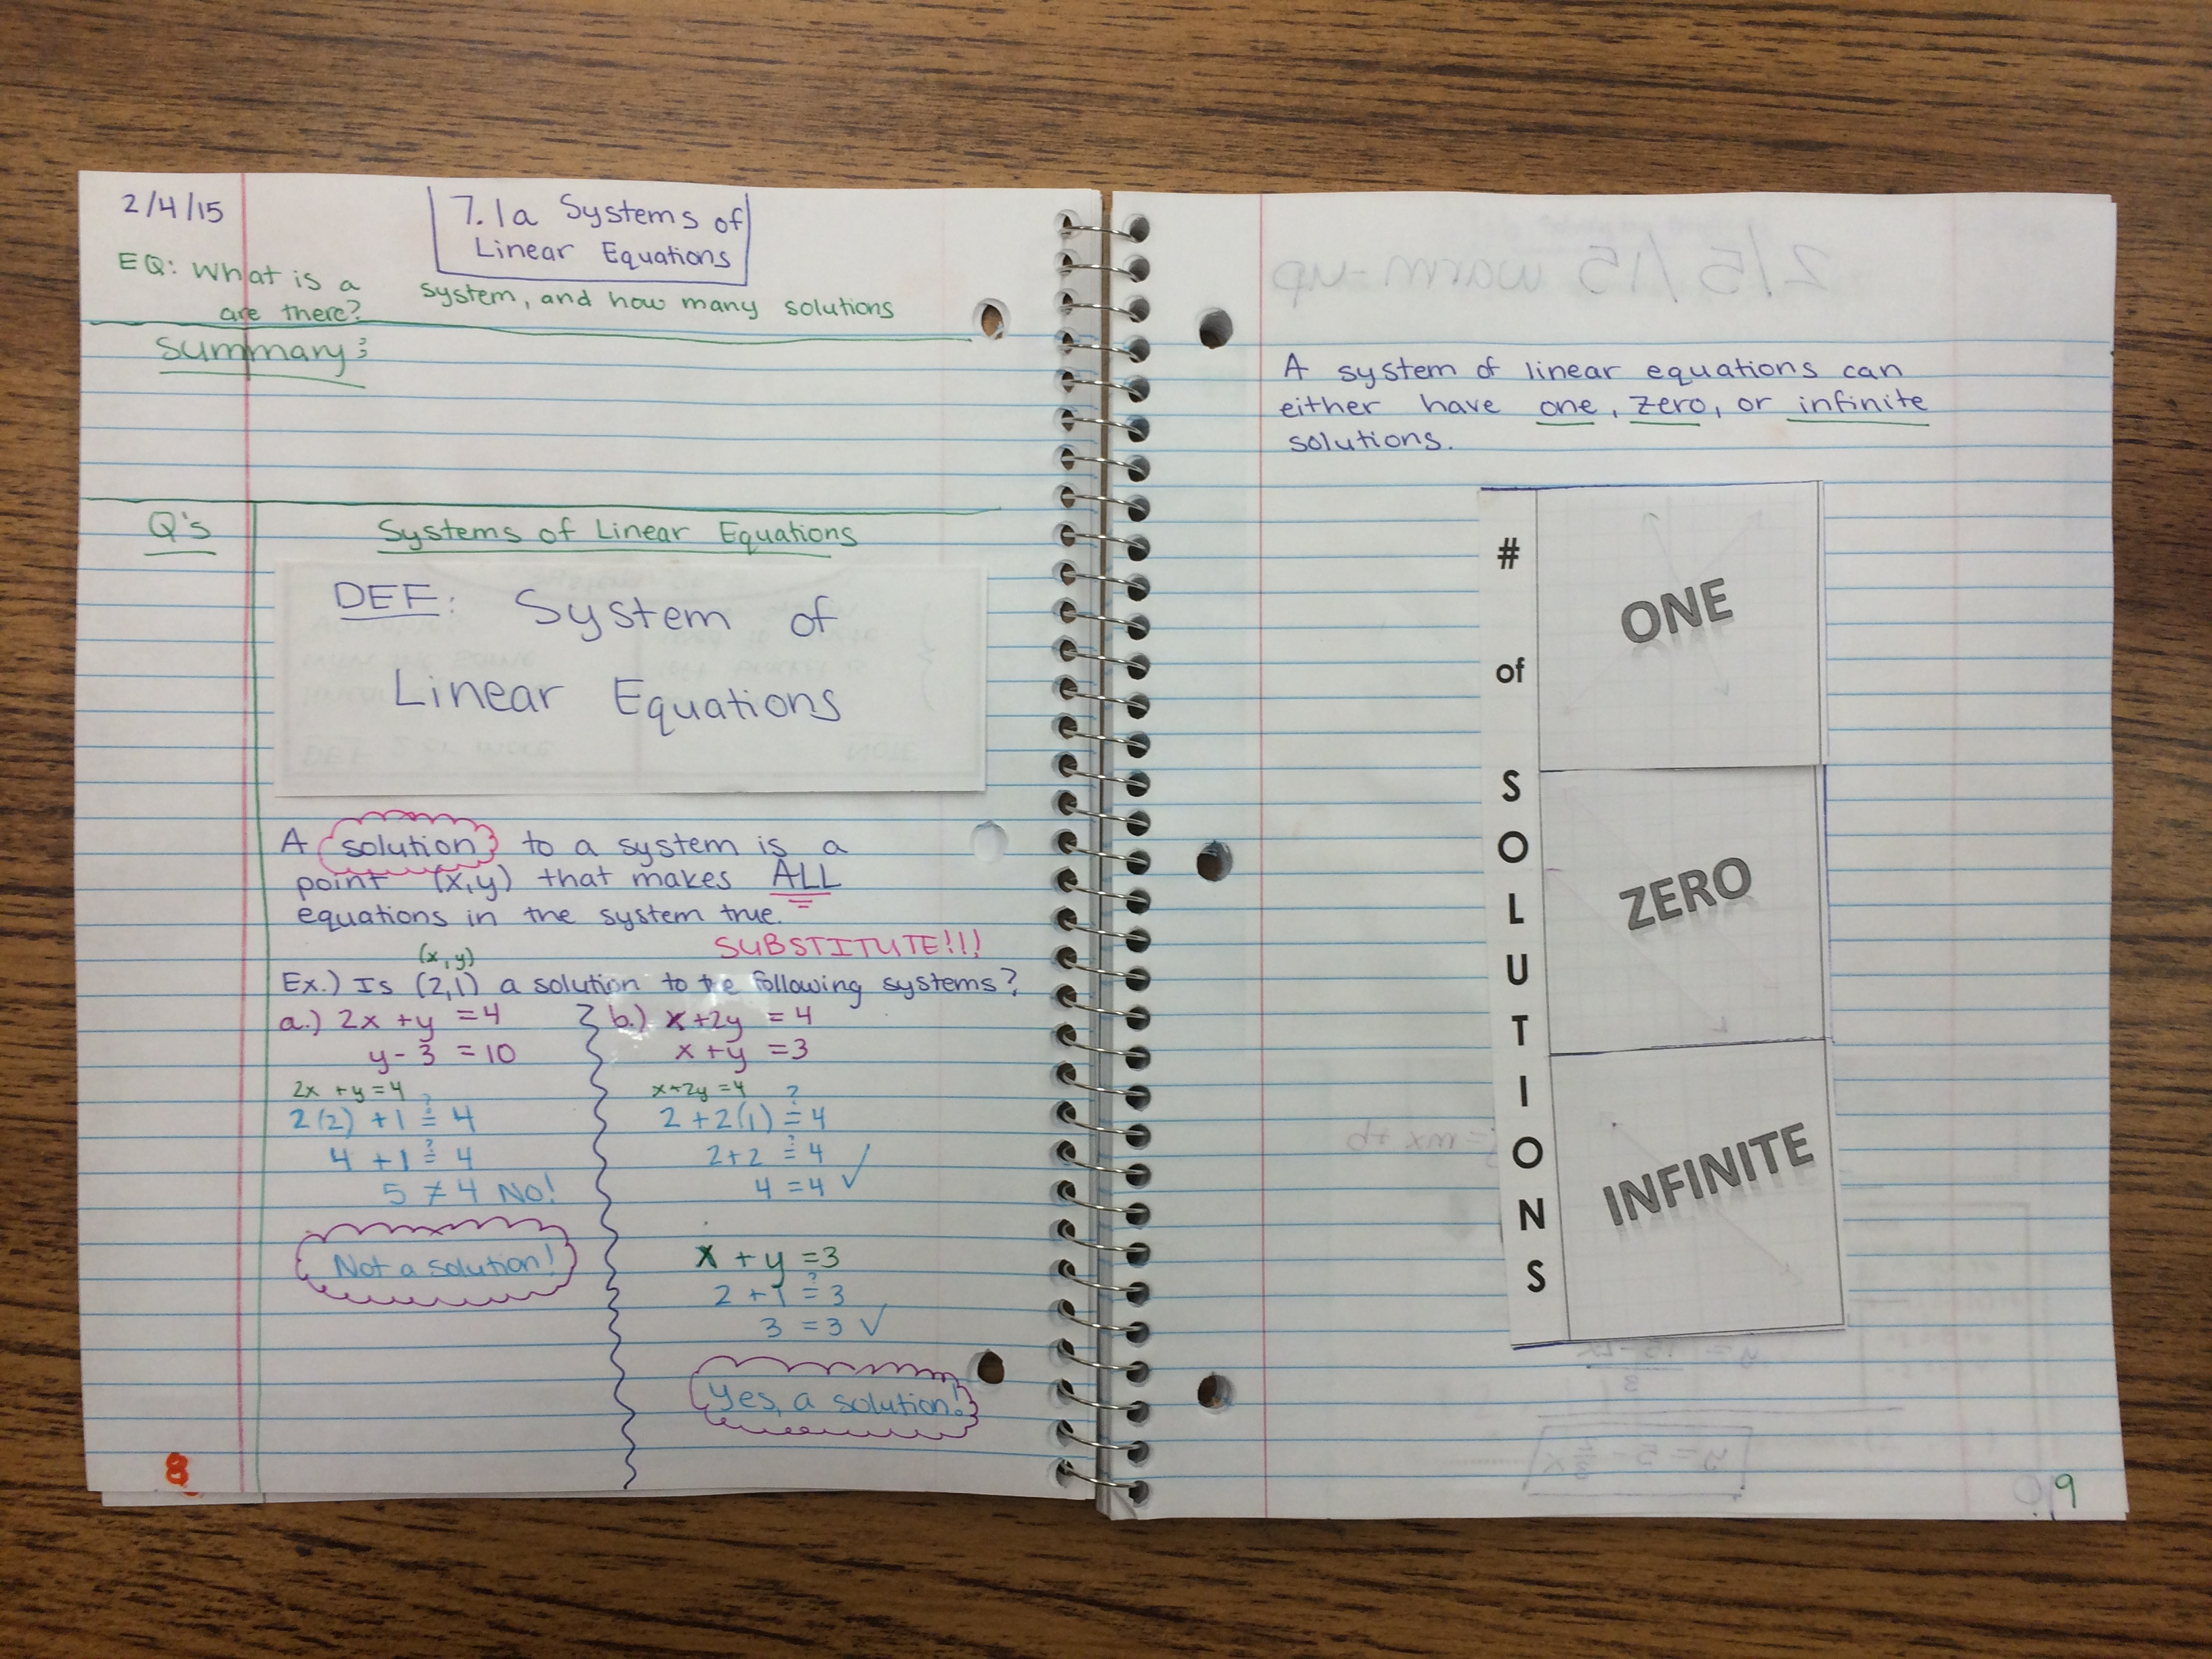 2/4/15
7.1a Systems of
Linear Equations
EQ: What is a system, and how many solutions
are there?
Summary:
Q's
Systems of Linear Equations
DEF: System of
Linear Equations
A solution to a system is a
point (x,y) that makes ALL
equations in the system true.
SUBSTITUTE!!!
(x,y)
Ex.) Is (2,1) a solution to the following systems?
a.) 2x + y = 4
y - 3 = 10
2x + y = 4
2(2) + 1 ≟ 4
4 + 1 ≟ 4
5 ≠ 4 NO!
Not a solution!
b.) x + 2y = 4
x + y = 3
x + 2y = 4
2 + 2(1) ≟ 4
2 + 2 ≟ 4
4 = 4 ✓
x + y = 3
2 + 1 ≟ 3
3 = 3 ✓
Yes, a solution!
8
2/5/15 warm-up
A system of linear equations can
either have one, zero, or infinite
solutions.
# of SOLUTIONS
ONE
ZERO
INFINITE
y = mx + b
9